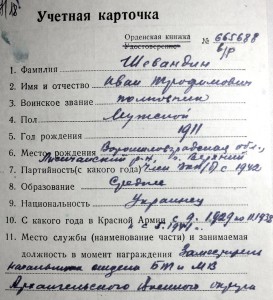 Учетная карточка
Орденская книжка
Удостоверение № 665688
б/р
1. Фамилия Шевандин
2. Имя и отчество Иван Трофимович
3. Воинское звание полковник
4. Пол Мужской
5. Год рождения 1911
6. Место рождения Ворошиловградская обл.,
Лисичанский р-н, с. Верхний
7. Партийность (с какого года) член ВКП/б/ с 1942
8. Образование Среднее
9. Национальность Украинец
10. С какого года в Красной Армии с 9.1929 по 11.1938
и с 5.1941 г.
11. Место службы (наименование части) и занимаемая
должность в момент награждения Заместитель
начальника отдела БТ и МВ
Архангельского Военного округа